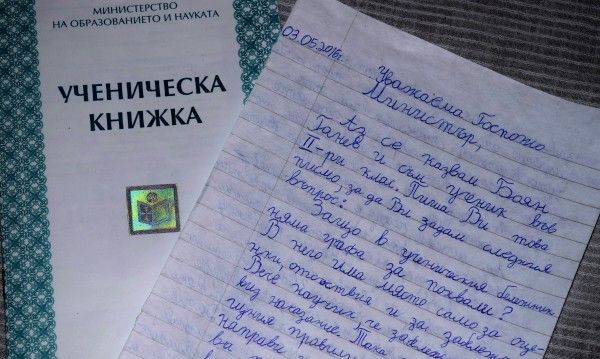 МИНИСТЕРСТВО
НА ОБРАЗОВАНИЕТО И НАУКАТА
УЧЕНИЧЕСКА
КНИЖКА
03.05.2016г.
Уважаема Госпожо
Министър,
Аз се назвам Боян
Ганев и съм ученик във
II-ри клас. Пиша Ви това
писмо, за да Ви задам следния
въпрос:
Защо в ученическия бележник
няма графа за похвали?
В него има място само за оце-
нки, отсъствия и за забеле
Вече научих, че забележ
виз наказание. Така
направи